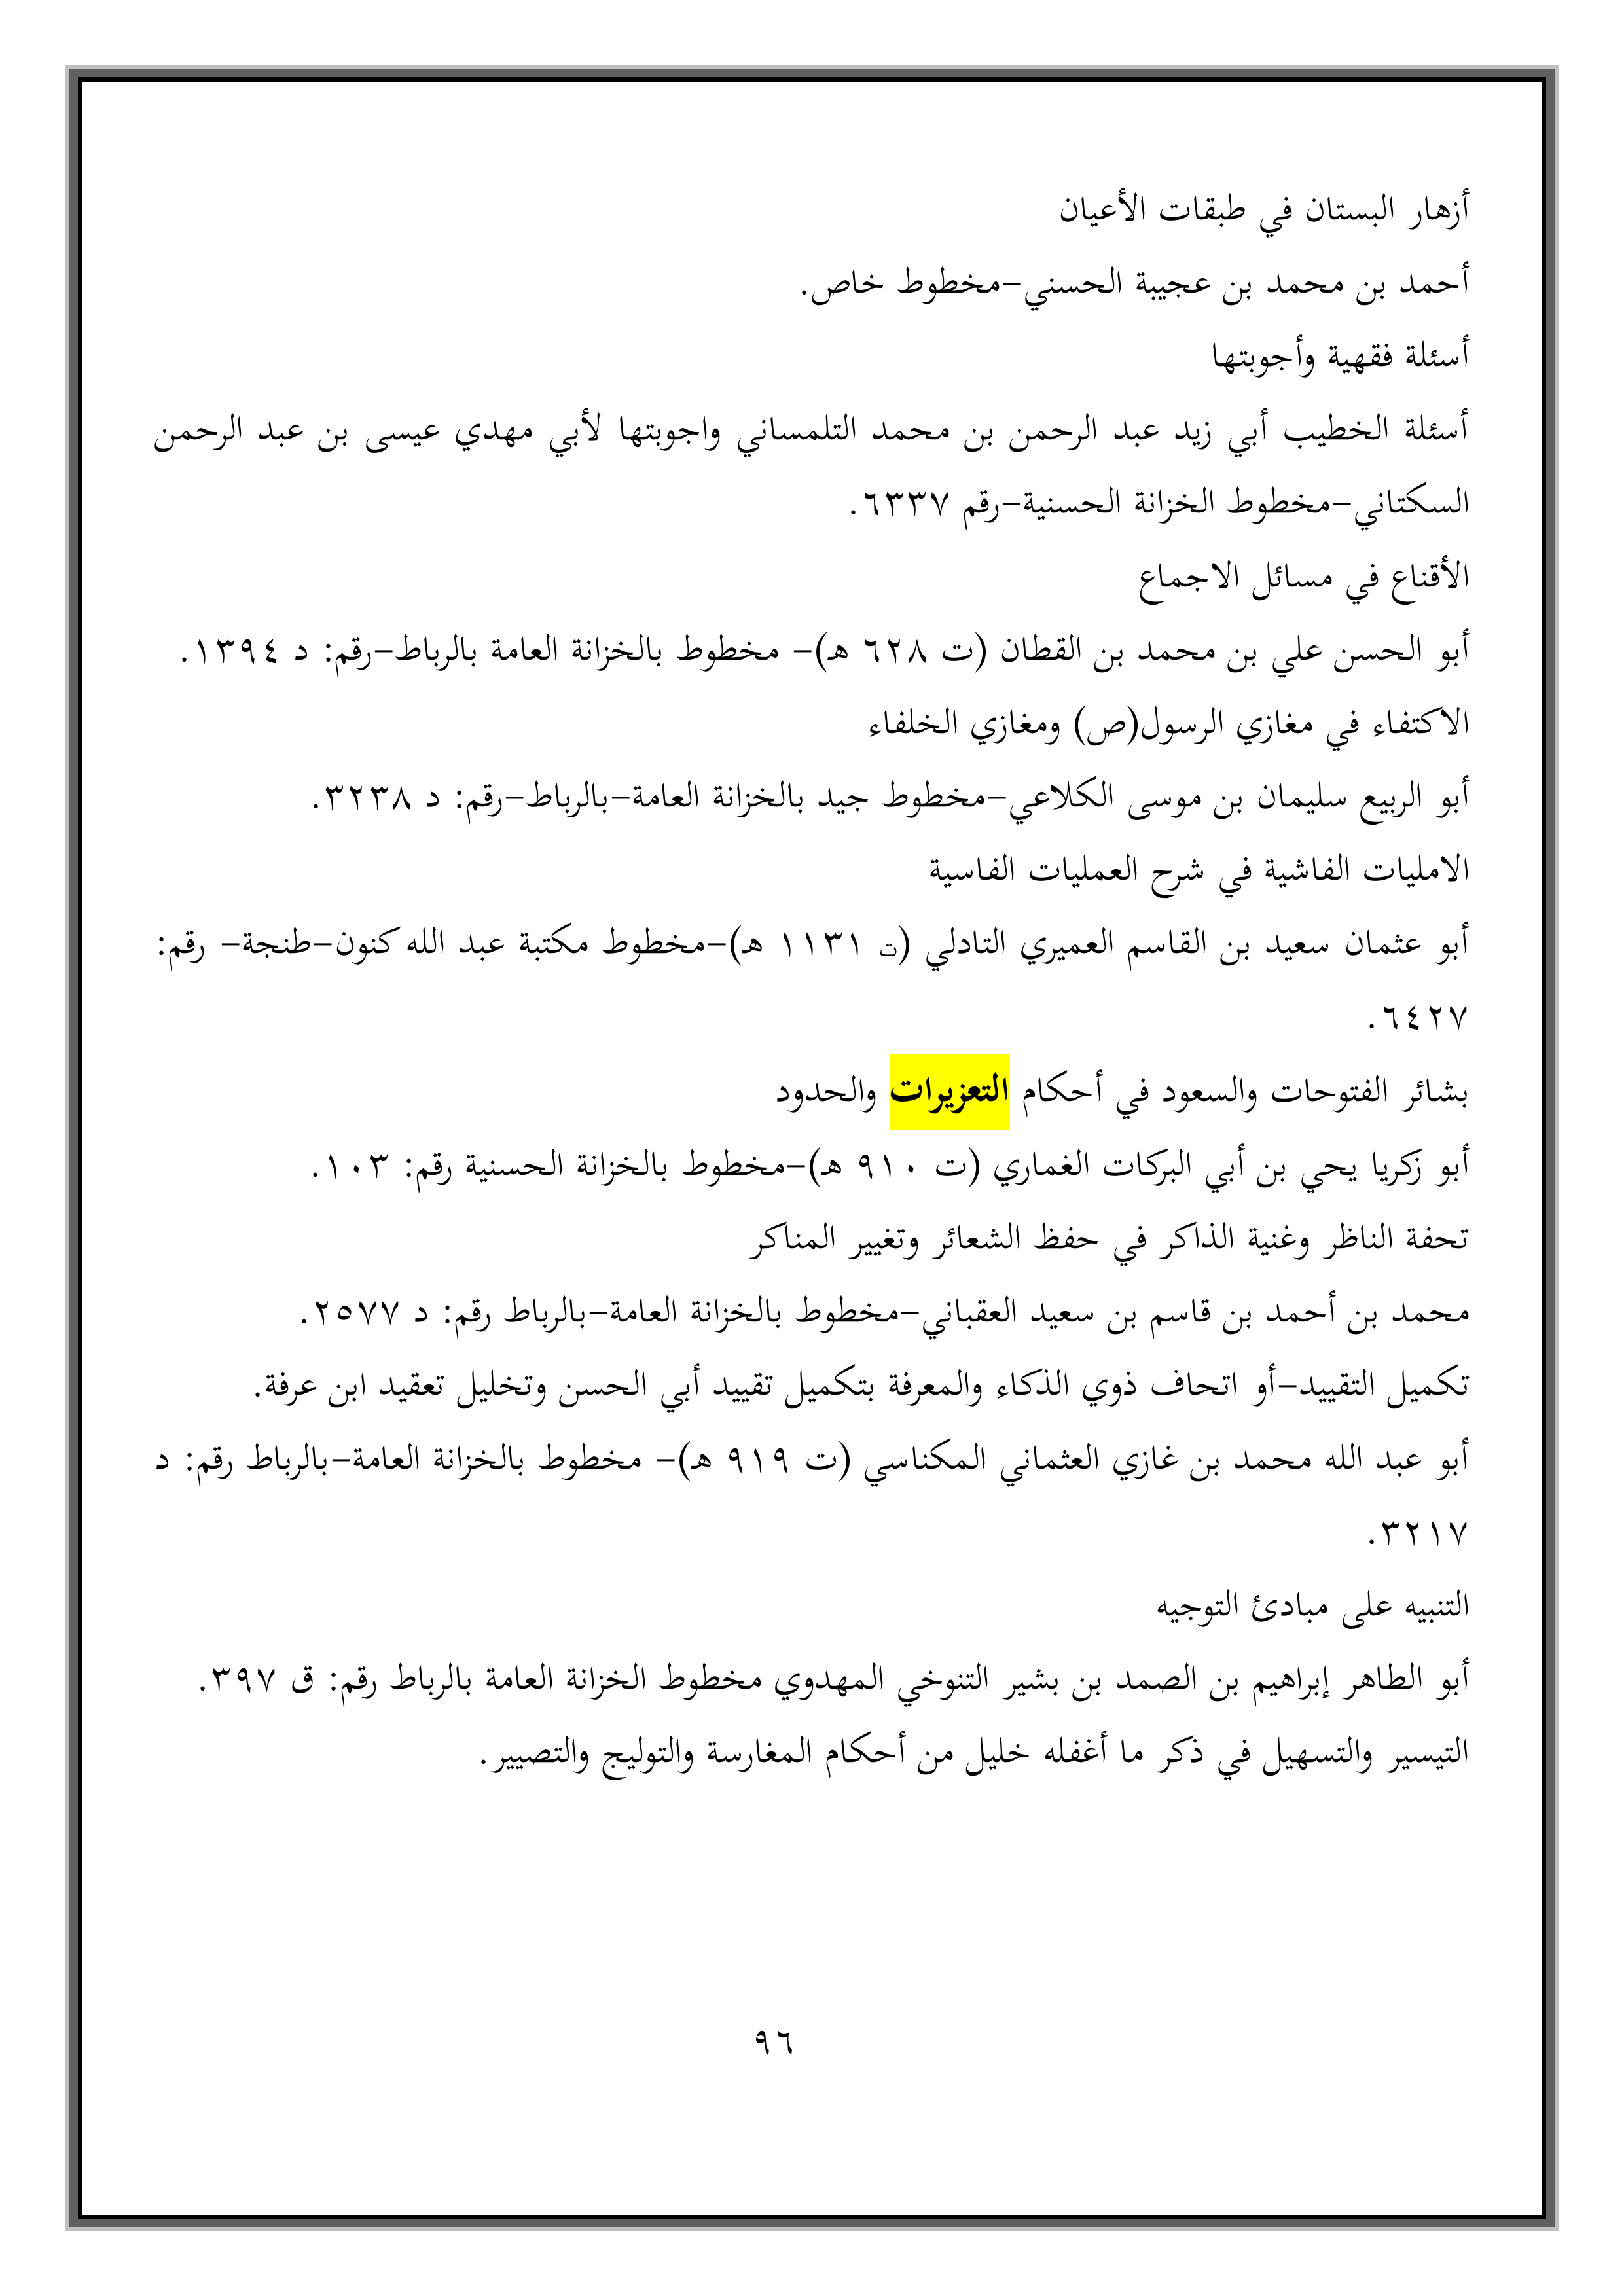 أزهار البستان في طبقات الأعيان
أحمد بن محمد بن عجيبة الحسني-مخطوط خاص.
أسئلة فقهية وأجوبتها
أسئلة الخطيب أبي زيد عبد الرحمن بن محمد التلمساني واجوبتها لأبي مهدي عيسى بن عبد الرحمن
السكتاني-مخطوط الخزانة الحسنية-رقم ٦٣٣٧.
الأقناع في مسائل الاجماع
أبو الحسن علي بن محمد بن القطان (ت ٦٢٨ هـ)- مخطوط بالخزانة العامة بالرباط-رقم: د ١٣٩٤.
الاكتفاء في مغازي الرسول(ص) ومغازي الخلفاء
أبو الربيع سليمان بن موسى الكلاعي-مخطوط جيد بالخزانة العامة-بالرباط-رقم: د ٣٢٣٨.
الامليات الفاشية في شرح العمليات الفاسية
أبو عثمان سعيد بن القاسم العميري التادلي (ت ١١٣١ هـ)-مخطوط مكتبة عبد الله كنون-طنجة- رقم:
٦٤٢٧.
بشائر الفتوحات والسعود في أحكام التعزيرات والحدود
أبو زكريا يحي بن أبي البركات الغماري (ت ٩١٠ هـ)-مخطوط بالخزانة الحسنية رقم: ١٠٣.
تحفة الناظر وغنية الذاكر في حفظ الشعائر وتغيير المناكر
محمد بن أحمد بن قاسم بن سعيد العقباني-مخطوط بالخزانة العامة-بالرباط رقم: د ٢٥٧٧.
تكميل التقييد-أو اتحاف ذوي الذكاء والمعرفة بتكميل تقييد أبي الحسن وتخليل تعقيد ابن عرفة.
أبو عبد الله محمد بن غازي العثماني المكناسي (ت ٩١٩ هـ)- مخطوط بالخزانة العامة-بالرباط رقم: د
٣٢١٧.
التنبيه على مبادئ التوجيه
أبو الطاهر إبراهيم بن الصمد بن بشير التنوخي المهدوي مخطوط الخزانة العامة بالرباط رقم: ق ٣٩٧.
التيسير والتسهيل في ذكر ما أغفله خليل من أحكام المغارسة والتوليج والتصيير.
٩٦